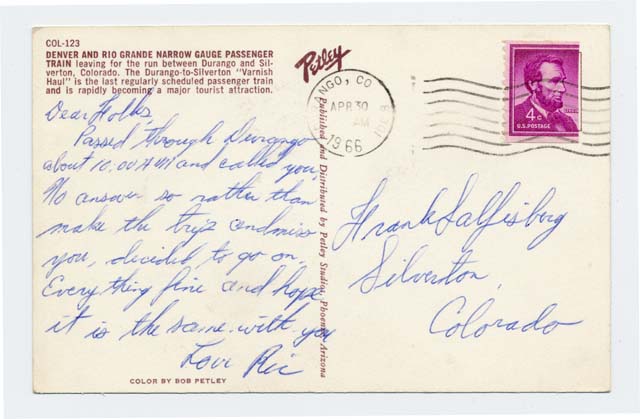 COL-123
DENVER AND RIO GRANDE NARROW GAUGE PASSENGER
TRAIN leaving for the run between Durango and Sil-
verton, Colorado. The Durango-to-Silverton "Varnish
Haul" is the last regularly scheduled passenger train
and is rapidly becoming a major tourist attraction.
Dear Folks
Passed through Durango
about 10:00 AM and called you,
No answer so rather than
make the trip and miss
you, decided to go on,
Everything fine and hope
it is the same with you
Love Ric
COLOR BY BOB PETLEY
Petley
Published and Distributed by Petley Studios, Phoenix, Arizona
ANGO, CO
APR 30
AM
1966
4¢
U.S. POSTAGE
Frank Salfisberg
Silverton,
Colorado